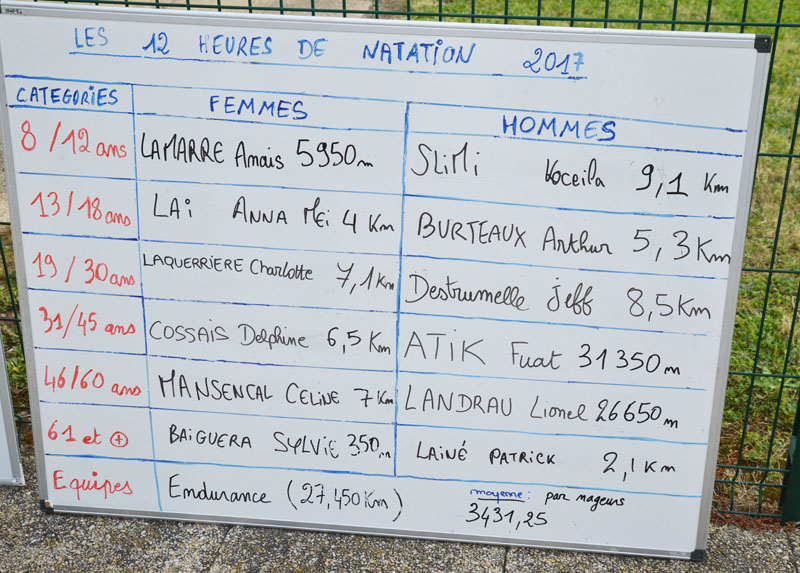 LES 12 HEURES DE NATATION 2017
CATEGORIES FEMMES HOMMES
8/12 ans LAMARRE Anais 5950m SLiMi Koceila 9,1 Km
13/18 ans LAi ANNA Mei 4 Km BURTEAUX Arthur 5,3Km
19/30 ans LAQUERRIERE Charlotte 7,1Km Destrumelle Jeff 8,5Km
31/45 ans COSSAIS Delphine 6,5 Km ATiK Fuat 31 350m
46/60 ans MANSENCAL CELINE 7 Km LANDRAU Lionel 26650m
61 et + BAiGUERA SYLViE 350m LAINÉ PATRICK 2,1 Km
Equipes Endurance (27,450Km) moyenne: par nageurs
3431,25